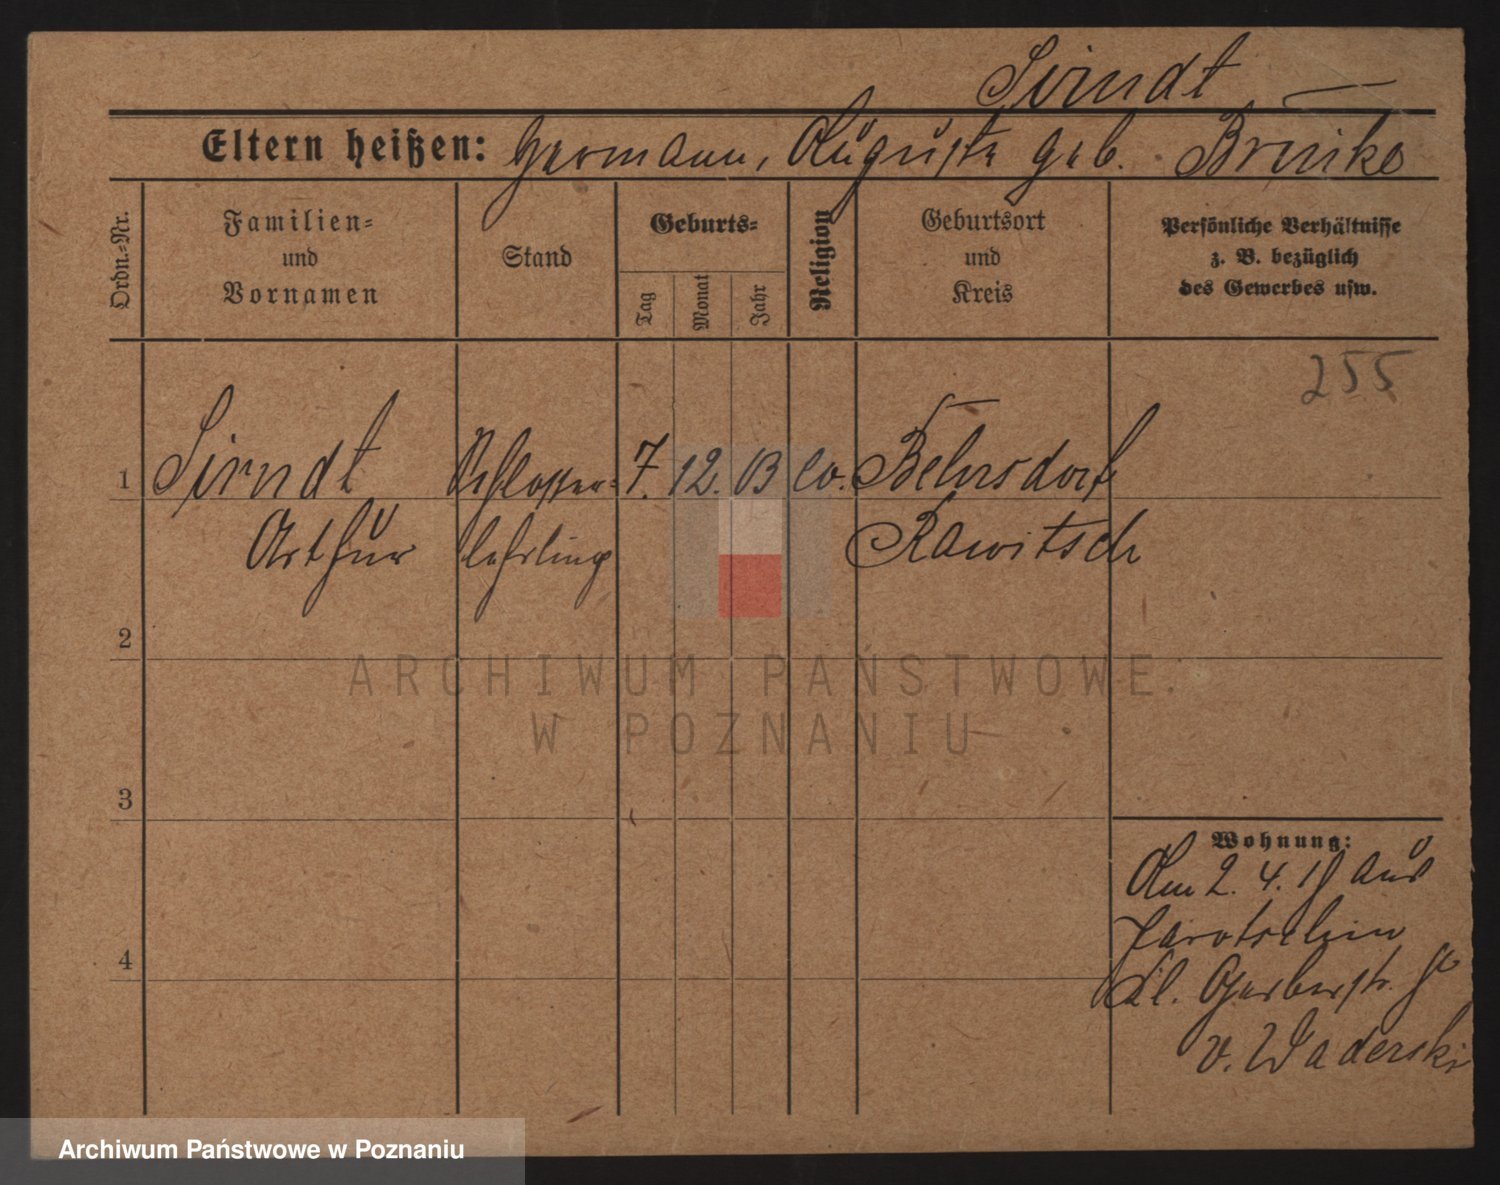 Sirndt
Eltern heißen: Hermann, Auguste geb. Brinke
Ordn.-Nr.
Familien- und Vornamen
Stand
Geburts-
Tag
Monat
Jahr
Religion
Geburtsort und Kreis
Persönliche Verhältnisse z. B. bezüglich des Gewerbes usw.
255
1 Sirndt Schlosser- 7. 12. 03 ev. Behrsdorf
Arthur lehrling Rawitsch
2
3
4
Wohnung:
Am 2. 4. 19 aus
Jarotschin
Kl. Gerberstr.
v. Waderski
ARCHIWUM PAŃSTWOWE
W POZNANIU
Archiwum Państwowe w Poznaniu